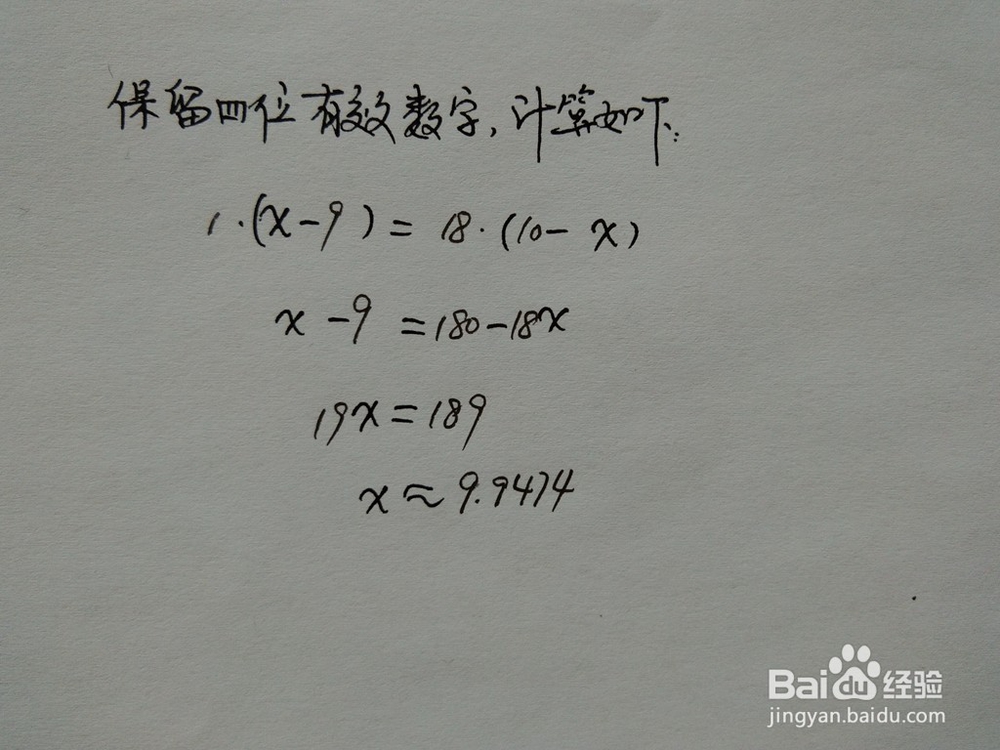 保留四位有效数字,计算如下:
1·(x-9)=18·(10-x)
x-9=180-18x
19x=189
x≈9.9474
Baidu经验
jingyan.baidu.com